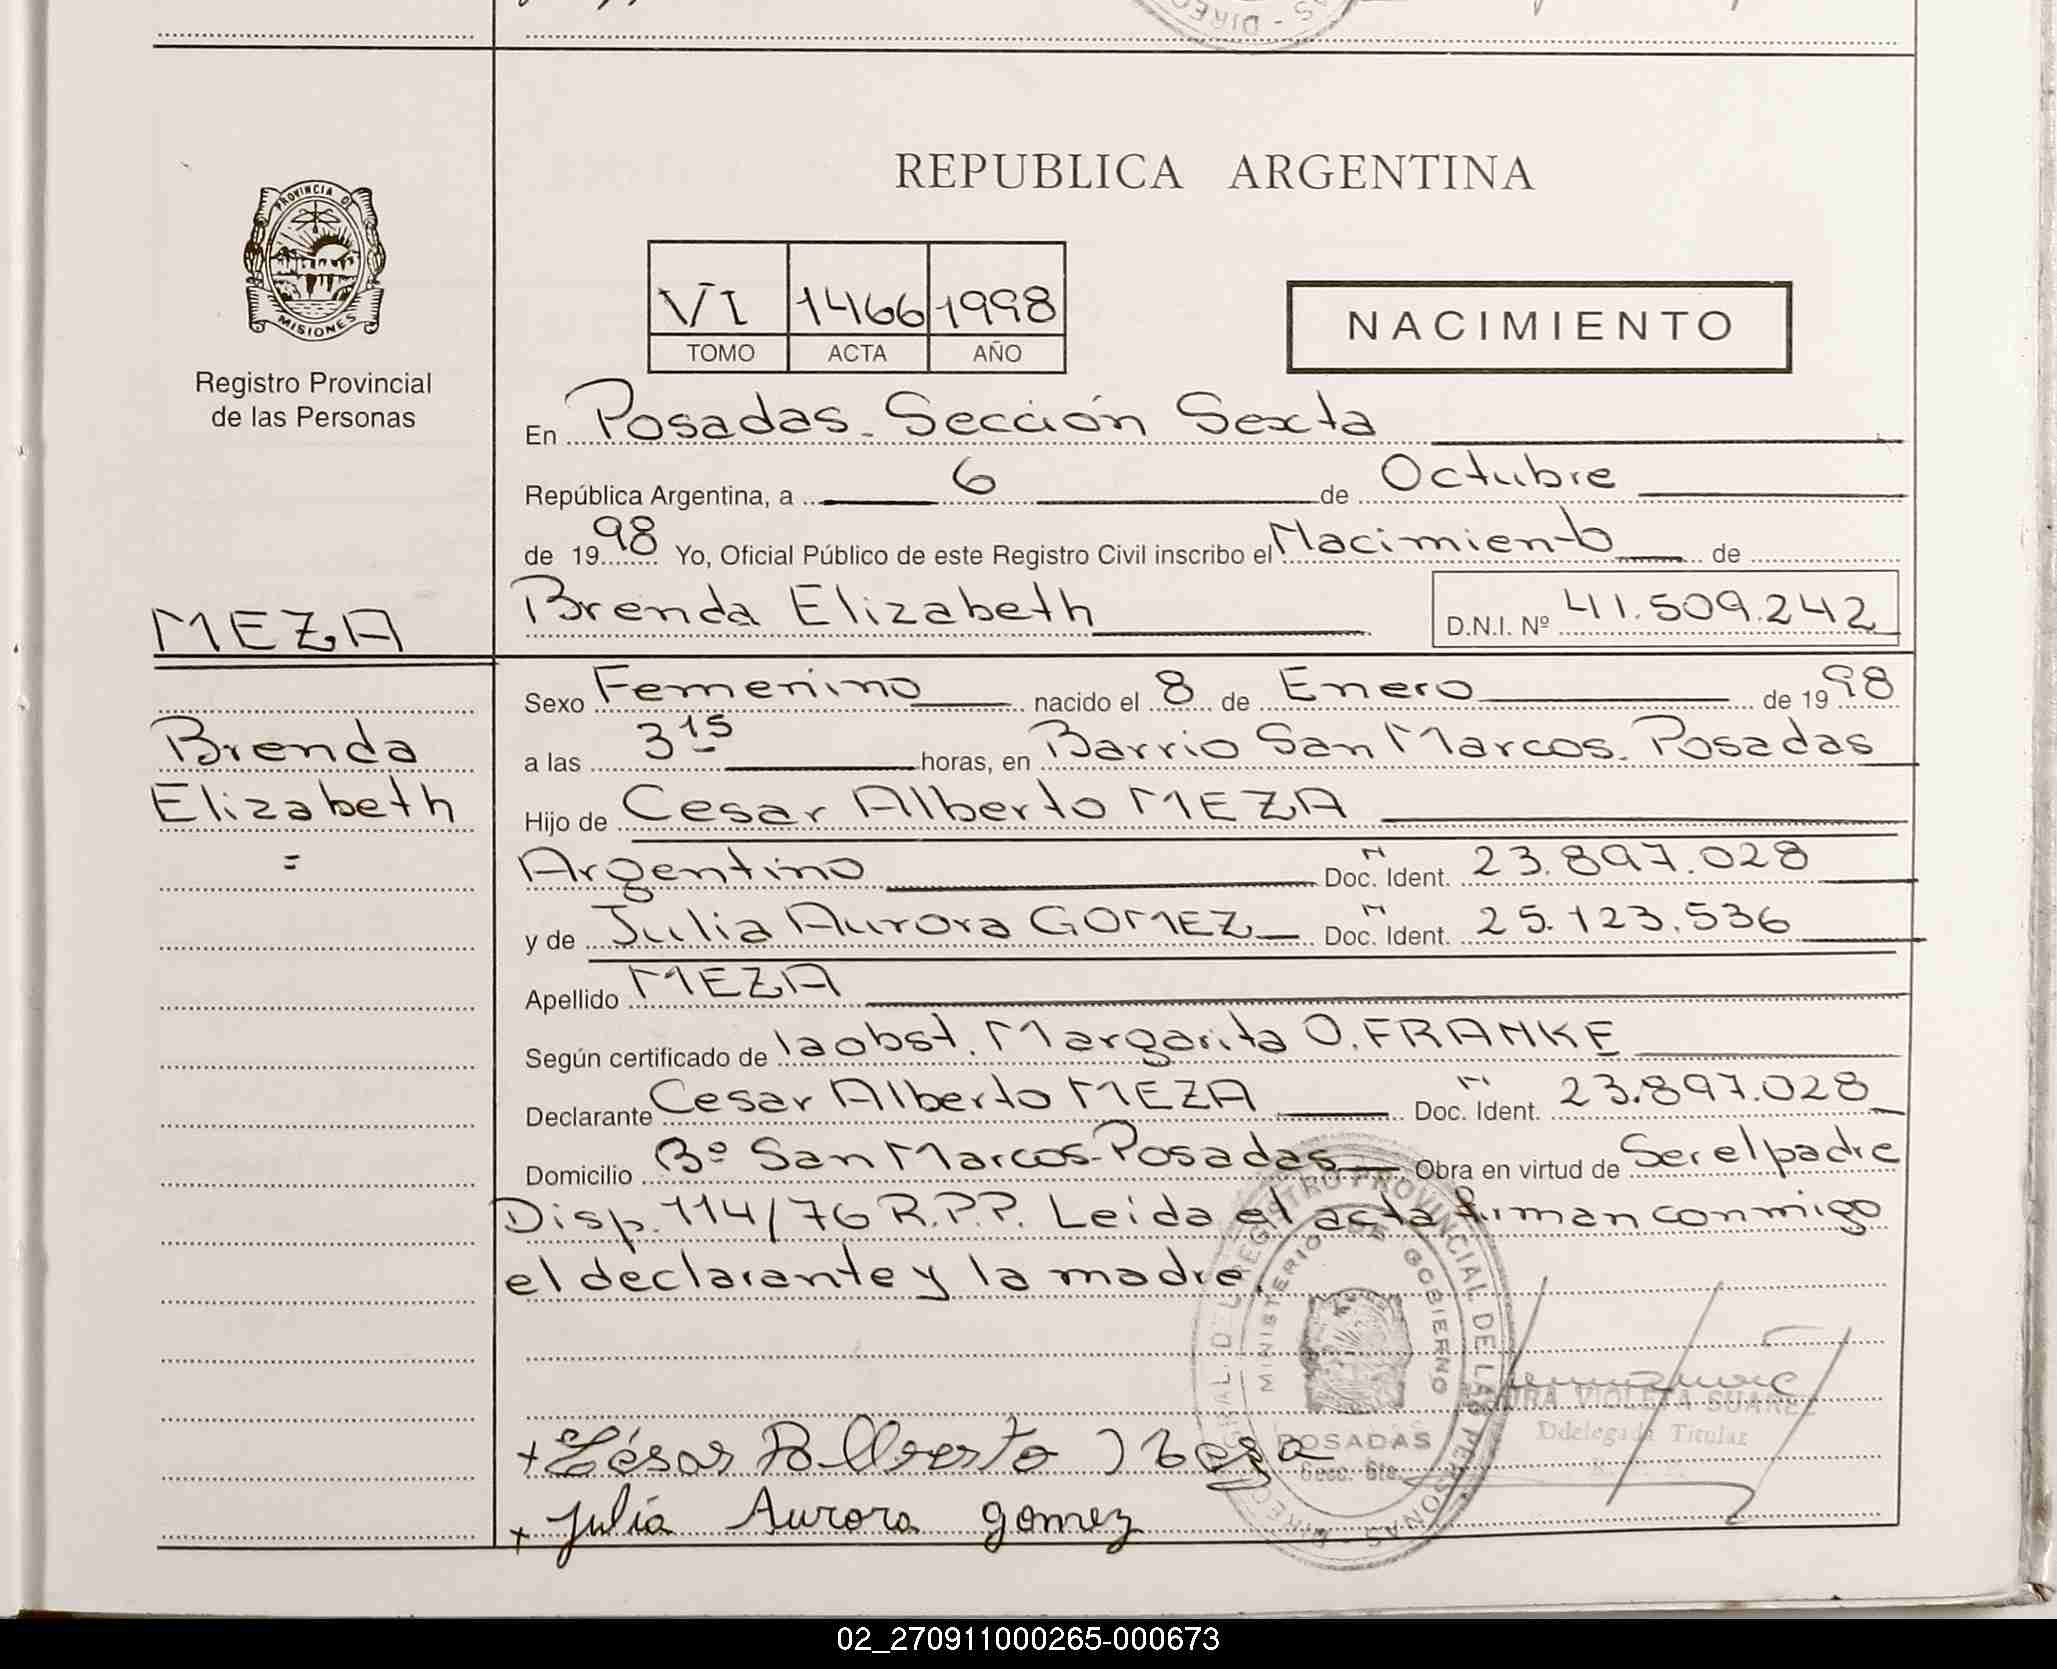 REPUBLICA ARGENTINA
PROVINCIA DE
MISIONES
Registro Provincial
de las Personas
VI 1466 1998
TOMO ACTA AÑO
NACIMIENTO
En Posadas. Sección Sexta
República Argentina, a 6 de Octubre
de 1998 Yo, Oficial Público de este Registro Civil inscribo el Nacimiento de
MEZA
Brenda Elizabeth D.N.I. Nº 41.509.242
Sexo Femenino nacido el 8 de Enero de 1998
Brenda
a las 3 15 horas, en Barrio San Marcos. Posadas
Elizabeth
Hijo de Cesar Alberto MEZA
=
Argentino Doc. Ident. 23.897.028
y de Julia Aurora GOMEZ Doc. Ident. 25.123.536
Apellido MEZA
Según certificado de la obst. Margarita O. FRANKE
Declarante Cesar Alberto MEZA Doc. Ident. 23.897.028
Domicilio Bº San Marcos-Posadas Obra en virtud de Ser el padre
Disp. 114/76 R.P.P. Leida el acta firman conmigo
el declarante y la madre.
DIRECC GRAL. DEL REGISTRO PROVINCIAL DE LAS PERSONAS
MINISTERIO DE GOBIERNO
POSADAS
Secc. 6ta.
VIOLETA SUAREZ
Ddelegada Titular
+ César Alberto Meza
+ Julia Aurora gomez
02_270911000265-000673